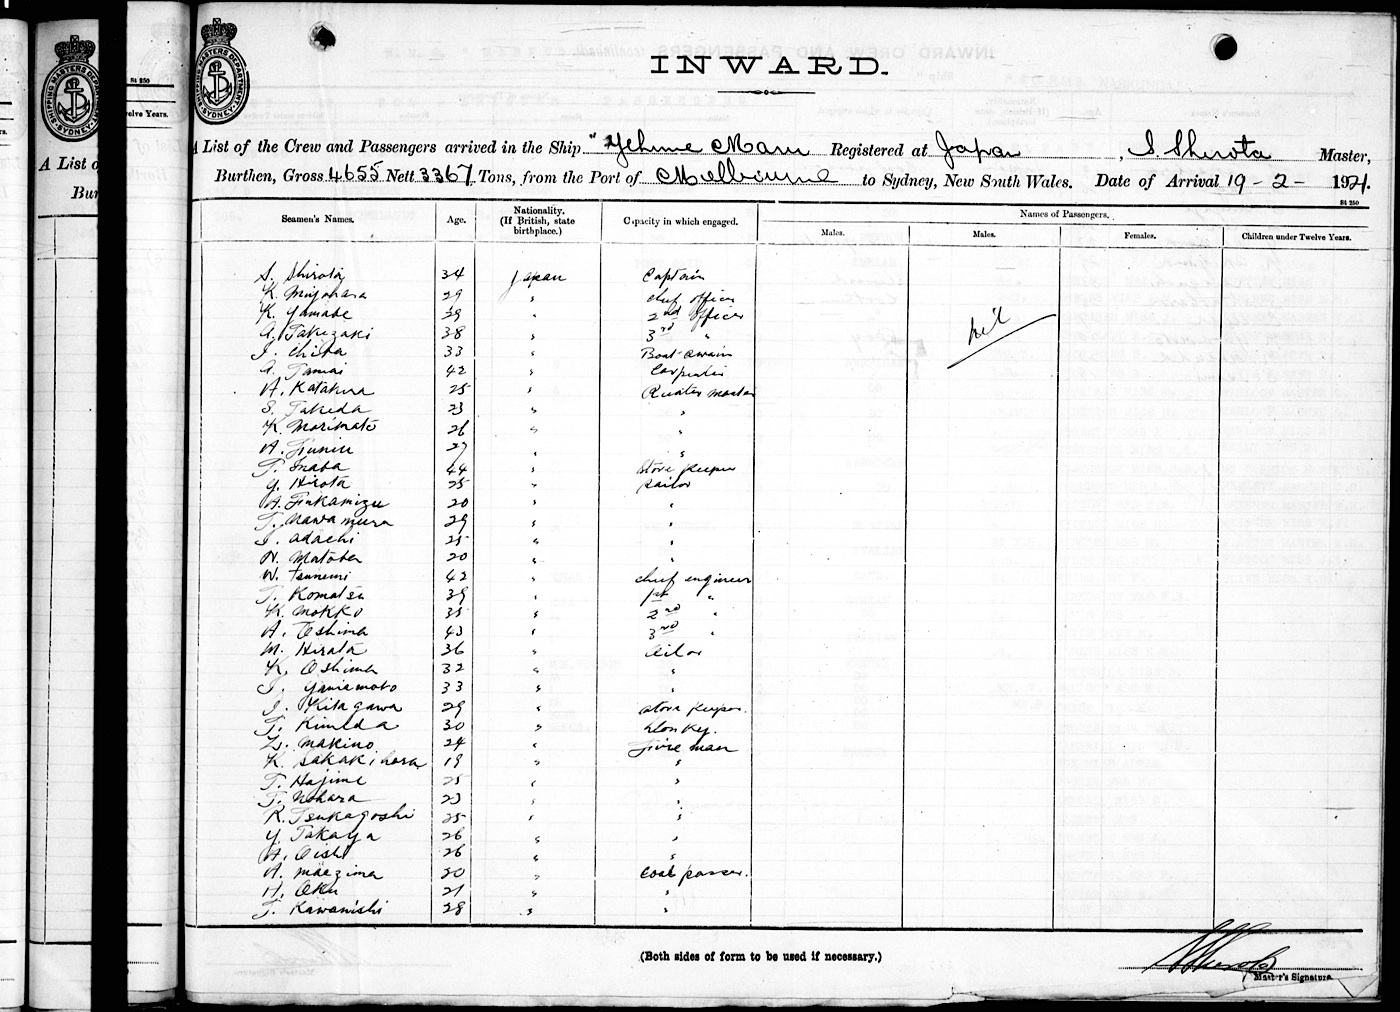 SHIPPING MASTERS DEPARTMENT
SYDNEY
St 250
twelve Years.
A List of
Bur
INWARD.
A List of the Crew and Passengers arrived in the Ship "Yehime Maru Registered at Japan, S. Shirota Master,
Burthen, Gross 4655 Nett 3367 Tons, from the Port of Melbourne to Sydney, New South Wales. Date of Arrival 19-2-1921.
St 250
Seamen's Names. Age. Nationality. (If British, state birthplace.) Capacity in which engaged. Names of Passengers.
Males. Males. Females. Children under Twelve Years.
S. Shirota 34 Japan Captain
K. Miyahara 29 " chief officer
K. Yamabe 29 " 2nd officer
A. Takezaki 38 " 3rd "
nil
I. Chiba 33 " Boat-swain
A. Tamai 42 " Carpenter
A. Katakura 25 " Quater master
S. Takeda 23 " "
K. Morimoto 26 " "
A. 27 " "
T. Inaba 44 " Store Keeper
Y. Hirota 25 " sailor
A. Fukamizu 20 " "
T. Nawamura 29 " "
I. Adachi 25 " "
N. Matoba 20 " "
W. Tsunemi 42 " chief engineer
T. Komatsu 39 " 1st "
K. Mokko 35 " 2nd "
A. Teshima 43 " 3rd "
M. Hirata 36 " Oilor
K. Oshima 32 " "
I. Yamamoto 33 " "
I. Kitagawa 29 " store keeper.
T. Kimida 30 " Donkey.
Z. Makino 24 " Fire man
K. Sakakihara 19 " "
T. Hajime 25 " "
T. Nohara 23 " "
R. Tsukagoshi 25 " "
Y. Takaya 26 " "
A. Oishi 26 " "
A. Maezima 30 " Coal passer.
H. Oku 21 " "
T. Kawanishi 28 " "
(Both sides of form to be used if necessary.)
S. Shirota
Master's Signature.